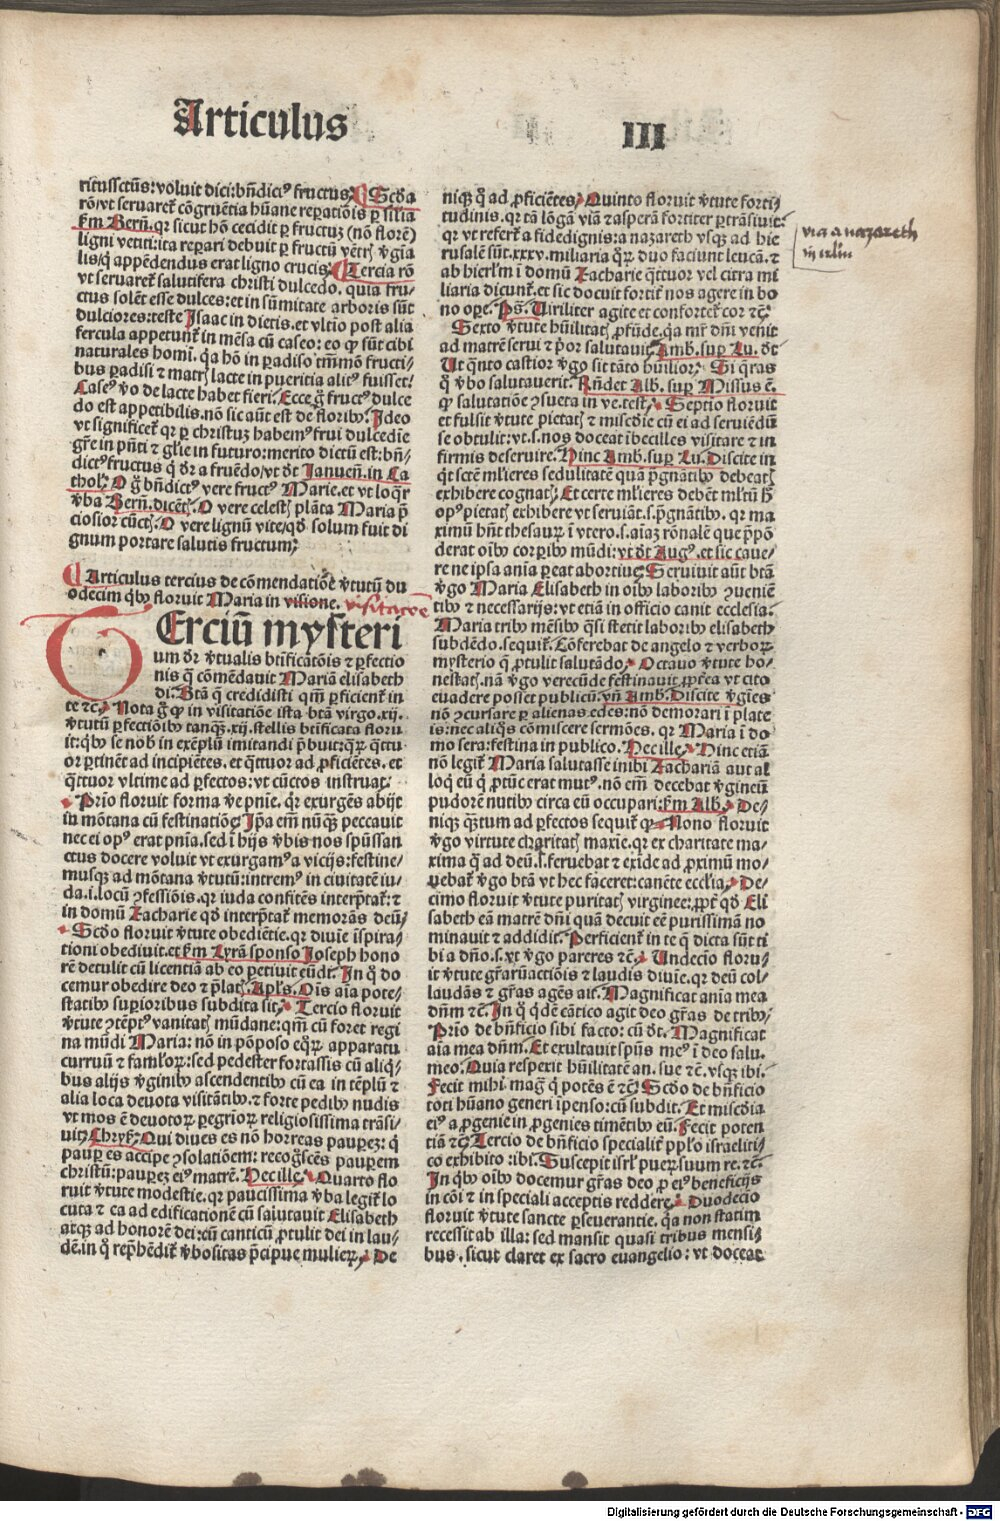 Articulus
III
ritussctūs: voluit dici: bn̄dictꝰ fructus. Scḋa
rō/vt seruaret̉ cōgruētia hūane reparatiōis ꝑ silia
ẜm Bern̄. qꝛ sicut hō cecidit ꝑ fructuꝫ (nō florē)
ligni vetiti: ita repari debuit ꝑ fructū vētrꝭ v̉gīa
lis/q̇ appēdendus erat ligno crucis. Tercia rō
vt seruaret̉ salutifera christi dulcedo. quia fru⸗
ctus solēt esse dulces: et in sūmitate arboris sūt
dulciores: teste Isaac in dietis. et vltīo post alia
fercula appetunt̉ in mēsa cū caseo: eo ꝙ sūt cibi
naturales homī. q̄a hō in ꝑadiso tm̄mō fructi⸗
bus ꝑadisi ⁊ matrꝭ lacte in pueritia alitꝰ fuisset.
Caseꝰ v̉o de lacte habet fieri. Ecce g̊ fructꝰ dulce
do est appetibilis. nō sic aūt est de floribꝫ. Ideo
vt significet̉ qꝛ ꝑ christuꝫ habemꝰ frui dulcedīe
gr̄e in pn̄ti ⁊ gl̄ie in futuro: merito dictū est: bn̄⸗
dictꝰ fructus q̇ dr̄ a fruēdo/vt dt̄ Januen̄. in Ca
thol. O g̊ bn̄dictꝰ vere fructꝰ Marie. et vt loq̄r
v̉ba Bern̄. dicētꝭ. O vere celestꝭ plāta Maria p̄
ciosior cūctꝭ. O vere lignū vite/qḋ solum fuit di
gnum portare salutis fructum.
Articulus tercius de cōmendatiōe v̉tutū du
odecim qͥbꝫ floruit Maria in visione. visitacōe
TErciū myſteri
um dr̄ v̉tualis btīficātōis ⁊ ꝑfectio
nis q̄ cōmēdauit Mariā elisabeth
di. Btā q̄ credidisti qm̄ ꝑficient̉ in
te ⁊č. Nota g̊ ꝙ in visitatiōe ista btā virgo .xij.
v̉tutū ꝑfectiōibꝫ tanqꝫ .xij. stellis btīficata floru
it: qͥbꝫ se nob̄ in exēplū imitandi p̄buit: quaꝝ q̄ttu
or ꝑtinēt ad incipiētes. et q̄ttuor ad ꝓficiētes. et
q̄ttuor vltime ad ꝑfectos: vt cūctos instruat.
Prīo floruit forma v̉e pn̄ie. q̄r exurgēs abijt
in mōtana cū festinatiōe. Ip̄a em̄ nūqꝫ peccauit
nec ei opꝰ erat pn̄ia. sed ī hijs v̉bis nos spūssan
ctus docere voluit vt exurgamꝰa vicijs: festine⸗
musqꝫ ad mōtana v̉tutū: intremꝰ in ciuitatē iu⸗
da .i. locū ꝯfessiōis. qꝛ iuda confitēs interp̄tat̉: ⁊
in domū Zacharie qḋ interp̄tat̉ memorās deū.
Scḋo floruit v̉tute obediētie. qꝛ diuīe īspira⸗
tioni obediuit. et ẜm Lyrā sponso Joseph hono
rē detulit cū licentiā ab eo petiuit eūdi. In q̊ do
cemur obedire deo ⁊ p̄latꝭ. Apl̄s. Ois aīa pote⸗
statibꝫ suꝑioribus subdita sit. Tercio floruit
v̉tute ꝯtēptꝰ vanitatꝭ mūdane: qm̄ cū foret regi
na mūdi Maria: nō in pōposo eq̄ꝝ apparatu
curruū ⁊ famloꝝ: sed pedester fortassis cū aliq̇⸗
bus alijs v̉ginibꝫ ascendentibꝫ cū ea in tēplū ⁊
alia loca deuota visitātibꝫ. ⁊ forte pedibꝫ nudis
vt mos ē deuotoꝝ ꝑegrīoꝝ religiosissima trāsi⸗
uit. Chrys. Qui diues es nō horreas pauꝑeꝫ: q̇
pauꝑ es accipe ꝯsolatiōem: recog̊scēs pauꝑem
christū: pauꝑeꝫ eiꝰ matrē. Hec ille. Quarto flo
ruit v̉tute modestie. qꝛ paucissima v̉ba legit̉ lo
cuta ⁊ ea ad edificationē cū salutauit Elisabeth
atqꝫ ad honorē dei: cū canticū ꝓtulit dei in lau⸗
dē. in q̊ rep̄hēdit̉ v̉bositas p̄cipue mulieꝝ. De
niqꝫ q̊ ad ꝓficiētes. Quinto floruit v̉tute forti⸗
tudinis. qꝛ tā lōgā viā ⁊ asperā fortiter ꝑtrāsiuit.
qꝛ vt refert̉ a fidedignis: a nazareth vsqꝫ ad hie
rusalē sūt .xxxv. miliaria q̄ꝝ duo faciunt leucā. ⁊
ab hierl̄m ī domū Zacharie q̄ttuor vel citra mi
liaria dicunt̉. et sic docuit fortit̉ nos agere in bo
no oꝑe. Ps̄. Uiriliter agite et confortet̉ cor ⁊č.
Sexto v̉tute hūilitatꝭ ꝓfūde. q̄a mr̄ dn̄i venit
ad matrē serui ⁊ p̄or salutauit. Amb̄. suꝑ Lu. dt̄
Ut q̄nto castior v̉go sit tāto hūilior. Si q̄ras
q̊ v̉bo salutauerit. Rn̄det Alb̄. suꝑ Missus ē.
ꝙ salutatiōe ꝯsueta in ve. test. Septīo floruit
et fulsit v̉tute pietatꝭ ⁊ miscḋie cū ei ad seruiēdū
se obtulit: vt .s. nos doceat ībecilles visitare ⁊ in
firmis deseruire. Hinc Amb̄. suꝑ Lu. Discite in
q̇t sctē ml̉ieres sedulitatē quā p̄gnātibꝫ debeatꝭ
exhibere cognatꝭ. Et certe ml̉ieres debēt ml̉tū h̄
opꝰ pietatꝭ exhibere vt seruiāt .s. p̄gnātibꝫ. qꝛ ma
ximū hn̄t thesauꝝ ī vtero .s. aīaꝫ rōnalē que p̄pō
derat oībꝫ corꝑibꝫ mūdi: vt dt̄ Augꝰ. et sic caue⸗
re ne ipsa anīa ꝑeat abortiue. Seruiuit aūt btā
v̉go Maria Elisabeth in oībꝫ laboribꝫ ꝯueniē
tibꝫ ⁊ necessarijs: vt etiā in officio canit ecclesia.
Maria tribꝫ mēsibꝫ q̄si stetit laboribꝫ elisabeth
subdēdo. sequit̉. Cōferebat de angelo ⁊ verboꝝ
mysterio q̄ ꝓtulit salutādo. Octauo v̉tute ho⸗
nestatꝭ. nā v̉go verecūde festinauit. ꝓpt̉ea vt cito
euadere posset publicū. vn̄ Amb̄. Discite v̉gīes
nō ꝯcursare ꝑ alienas edes: nō demorari ī plate
is: nec aliq̇s cōmiscere sermōes. qꝛ Maria ī do
mo sera: festina in publico. Hec ille. Hinc etiā
nō legit̉ Maria salutasse inibi Zachariā aut al
loq̄ eū q̇ ꝓtūc erat mutꝰ. nō em̄ decebat v̉gineū
pudorē nutibꝫ circa eū occupari: ẜm Alb̄. De⸗
niqꝫ q̄tum ad ꝑfectos sequit̉ ꝙ Nono floruit
v̉go virtute charitatꝭ maxīe. qꝛ ex charitate ma⸗
xima q̄ ad deū .s. feruebat ⁊ exīde ad ꝓximū mo⸗
uebat̉ v̉go btā vt hec faceret: canēte eccl̄ia. De⸗
cimo floruit v̉tute puritatꝭ virginee: ꝓpt̉ qḋ Eli
sabeth eā matrē dn̄i quā decuit eē purissimā no
minauit ⁊ addidit. Perficient̉ in te q̄ dicta sūt ti
bi a dn̄o .s. vt v̉go pareres ⁊č. Undecīo floru⸗
it v̉tute gr̄aꝝactiōis ⁊ laudis diuīe. qꝛ deū col⸗
laudās ⁊ gr̄as agēs ait. Magnificat anīa mea
dn̄m ⁊č. In q̊ q̇dē cātico agit deo gr̄as de tribꝫ.
Prīo de bn̄ficio sibi facto: cū dt̄. Magnificat
aīa mea dn̄m. Et exultauit spūs meꝰ ī deo salu.
meo. Quia respexit hūilitatē an. sue ⁊č. vsqꝫ ibi.
Fecit mihi maḡ q̇ potēs ē ⁊č. Scḋo de bn̄ficio
toti hūano generi īpenso: cū subdit. Et miscḋia
eiꝰ a ꝓgenie in ꝓgenies timētibꝫ eū. Fecit poten
tiā ⁊č. Tercio de bn̄ficio specialit̉ ppl̄o israeliti⸗
co exhibito: ibi. Suscepit isrl̄ pueꝝ suum re. ⁊č.
In qͥbꝫ oībꝫ docemur gr̄as deo ꝓ eiꝰ beneficijs
in cōi ⁊ in speciali acceptis reddere. Duodecīo
floruit v̉tute sancte ꝑseuerantie. q̄a non statim
recessit ab illa: sed mansit quasi tribus mensi⸗
bus. sicut claret ex sacro euangelio: vt doceat
via a nazareth
in irl̄m
Digitalisierung gefördert durch die Deutsche Forschungsgemeinschaft - DFG